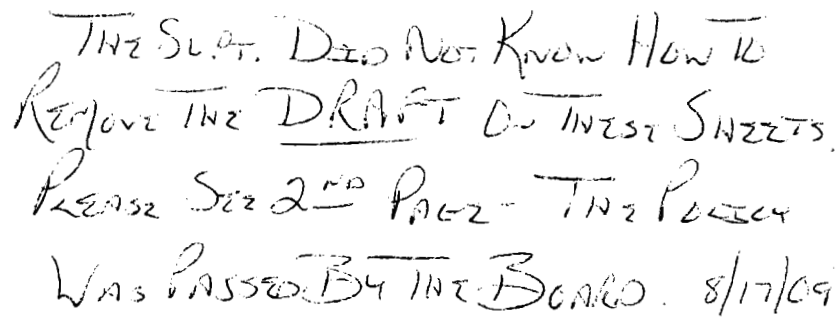 The Supt. Did Not Know How To
Remove The DRAFT On These Sheets.
Please See 2nd Page - The Policy
Was Passed By The Board. 8/17/09